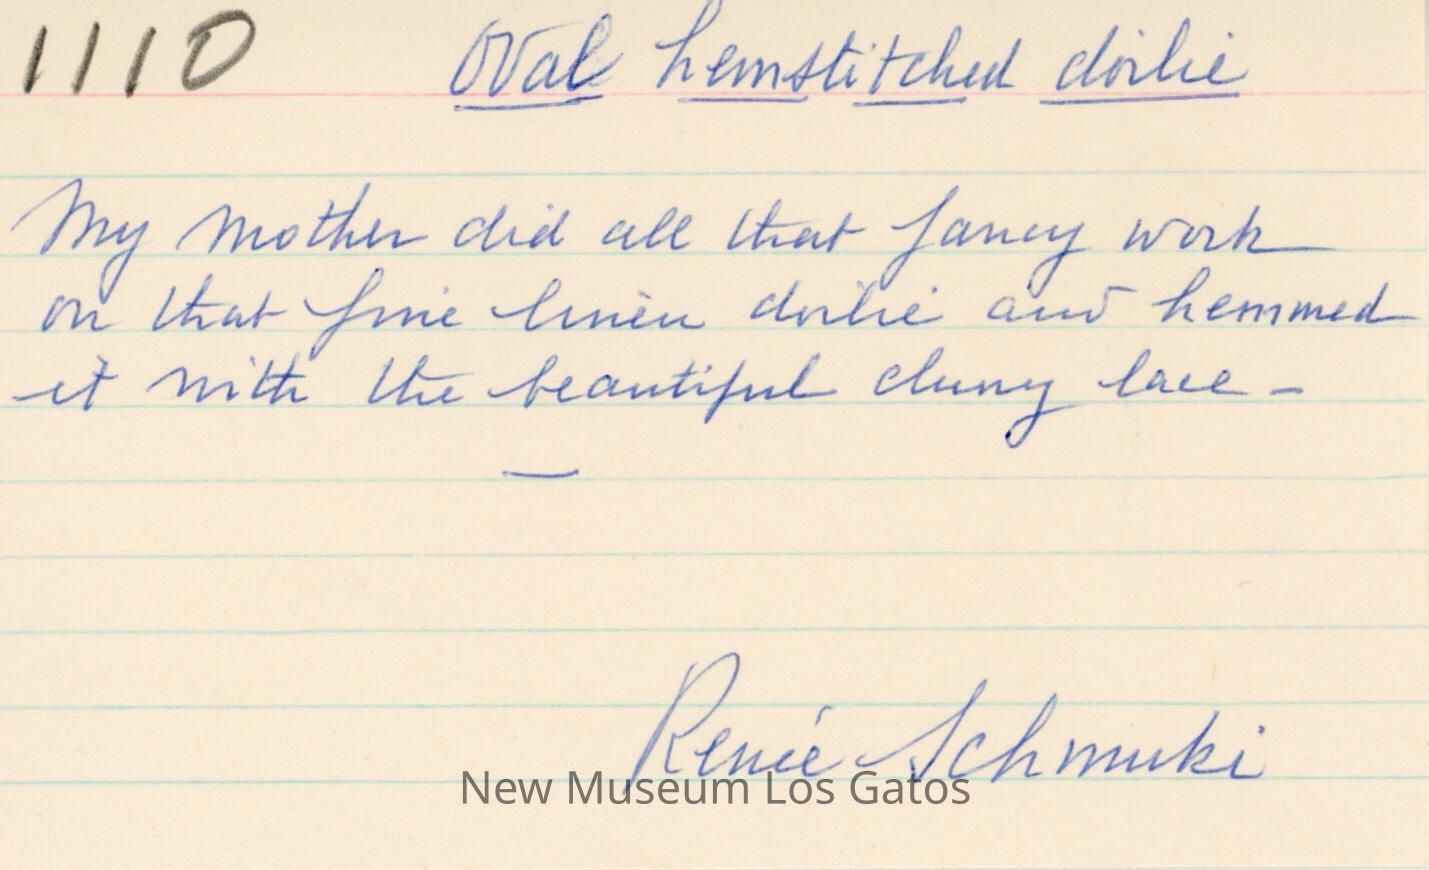 1110 Oval hemstitched doilie
My mother did all that fancy work
on that fine linen doilie and hemmed
it with the beautiful cluny lace -
Renée Schmuki
New Museum Los Gatos